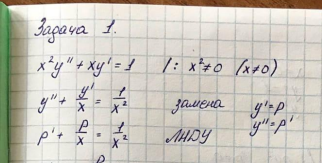 Задача 1.
x²y'' + xy' = 1 /: x² ≠ 0 (x ≠ 0)
y'' + y'/x = 1/x² замена y' = p
y'' = p'
p' + p/x = 1/x² ЛНДУ
p